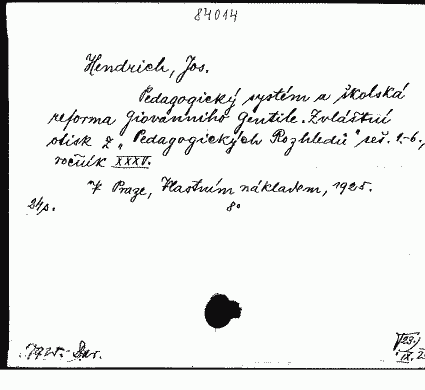 84014
Hendrich, Jos.
Pedagogický systém a školská
reforma Giovanniho Gentile. Zvláštní
otisk z „Pedagogických Rozhledů" seš. 1.-6.,
ročník XXXV.
V Praze, Vlastním nákladem, 1925.
24 s. 8°
1925. Dar.